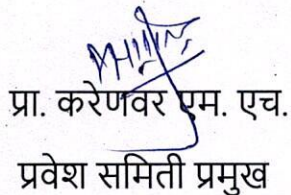 प्रा. करेणवर एम. एच.
प्रवेश समिती प्रमुख